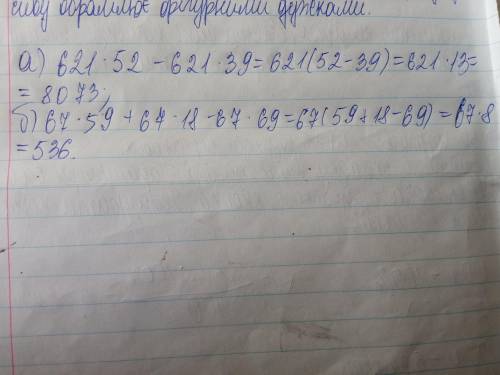 силу обрамлює фігурними держками.
а) 621 · 52 - 621 · 39 = 621(52 - 39) = 621 · 13 =
= 8073;
б) 67 · 59 + 67 · 18 - 67 · 69 = 67(59 + 18 - 69) = 67 · 8
= 536.